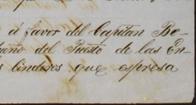 a favor del Capitan Be
ueño del Puesto de las En
s linderos que espresa